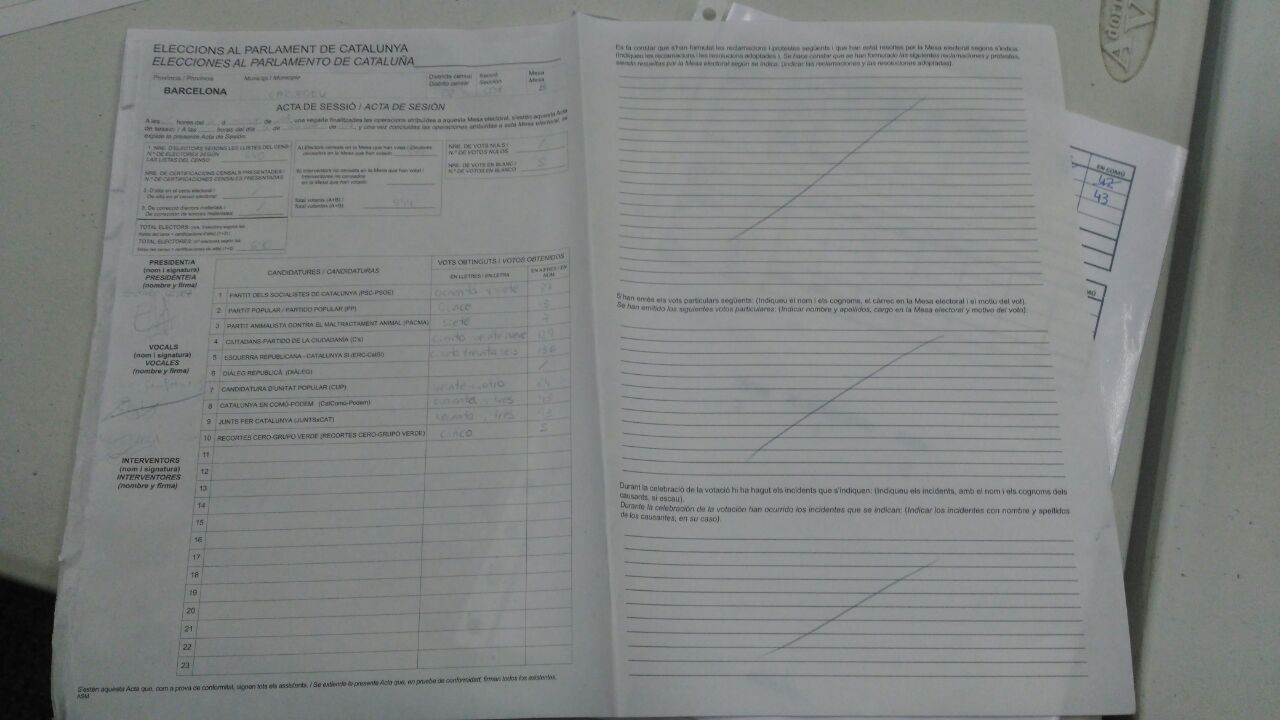 ELECCIONS AL PARLAMENT DE CATALUNYA
ELECCIONES AL PARLAMENTO DE CATALUÑA
Província / Provincia Municipi / Municipio Districte censal Secció Mesa
Distrito censal Sección Mesa
BARCELONA B
ACTA DE SESSIÓ / ACTA DE SESIÓN
A les hores del d de una vegada finalitzades les operacions atribuïdes a aquesta Mesa electoral, s'estén aquesta Acta
de sessió: / A las horas del día de y una vez concluidas las operaciones atribuidas a esta Mesa electoral, se
expide la presente Acta de Sesión:
1. NRE. D'ELECTORS SEGONS LES LLISTES DEL CENS
N.º DE ELECTORES SEGÚN
LAS LISTAS DEL CENSO
NRE. DE CERTIFICACIONS CENSALS PRESENTADES /
N.º DE CERTIFICACIONES CENSALES PRESENTADAS
2. D'alta en el cens electoral /
De alta en el censo electoral:
3. De correcció d'errors materials /
De corrección de errores materiales:
TOTAL ELECTORS:
TOTAL ELECTORES:
A) Electors censats en la Mesa que han votat / Electores
censados en la Mesa que han votado:
B) Interventors no censats en la Mesa que han votat /
Interventores no censados
en la Mesa que han votado:
Total votants (A+B) /
Total votantes (A+B):
NRE. DE VOTS NULS /
N.º DE VOTOS NULOS
NRE. DE VOTS EN BLANC / 5
N.º DE VOTOS EN BLANCO
PRESIDENT/A
(nom i signatura)
PRESIDENTE/A
(nombre y firma)
VOCALS
(nom i signatura)
VOCALES
(nombre y firma)
INTERVENTORS
(nom i signatura)
INTERVENTORES
(nombre y firma)
CANDIDATURES / CANDIDATURAS VOTS OBTINGUTS / VOTOS OBTENIDOS
EN LLETRES / EN LETRA EN XIFRES / EN NÚM.
1 PARTIT DELS SOCIALISTES DE CATALUNYA (PSC-PSOE)
2 PARTIT POPULAR / PARTIDO POPULAR (PP)
3 PARTIT ANIMALISTA CONTRA EL MALTRACTAMENT ANIMAL (PACMA) siete 7
4 CIUTADANS-PARTIDO DE LA CIUDADANÍA (C's) ciento veintinueve 129
5 ESQUERRA REPUBLICANA - CATALUNYA SÍ (ERC-CatSí) ciento treinta seis 136
6 DIÀLEG REPUBLICÀ (DIÀLEG)
7 CANDIDATURA D'UNITAT POPULAR (CUP) veinte cuatro 24
8 CATALUNYA EN COMÚ-PODEM (CatComú-Podem) cuarenta y tres 43
9 JUNTS PER CATALUNYA (JUNTSxCAT)
10 RECORTES CERO-GRUPO VERDE (RECORTES CERO-GRUPO VERDE) cinco 5
11
12
13
14
15
16
17
18
19
20
21
22
23
S'estén aquesta Acta que, com a prova de conformitat, signen tots els assistents. / Se extiende la presente Acta que, en prueba de conformidad, firman todos los asistentes.
ASM
Es fa constar que s'han formulat les reclamacions i protestes següents i que han estat resoltes per la Mesa electoral segons s'indica.
(Indiqueu les reclamacions i les resolucions adoptades). Se hace constar que se han formulado las siguientes reclamaciones y protestas,
siendo resueltas por la Mesa electoral según se indica: (indicar las reclamaciones y las resoluciones adoptadas).
S'han emès els vots particulars següents: (Indiqueu el nom i els cognoms, el càrrec en la Mesa electoral i el motiu del vot).
Se han emitido los siguientes votos particulares: (Indicar nombre y apellidos, cargo en la Mesa electoral y motivo del voto).
Durant la celebració de la votació hi ha hagut els incidents que s'indiquen: (Indiqueu els incidents, amb el nom i els cognoms dels
causants, si escau).
Durante la celebración de la votación han ocurrido los incidentes que se indican: (Indicar los incidentes con nombre y apellidos
de los causantes, en su caso).
EN COMÚ
42
43